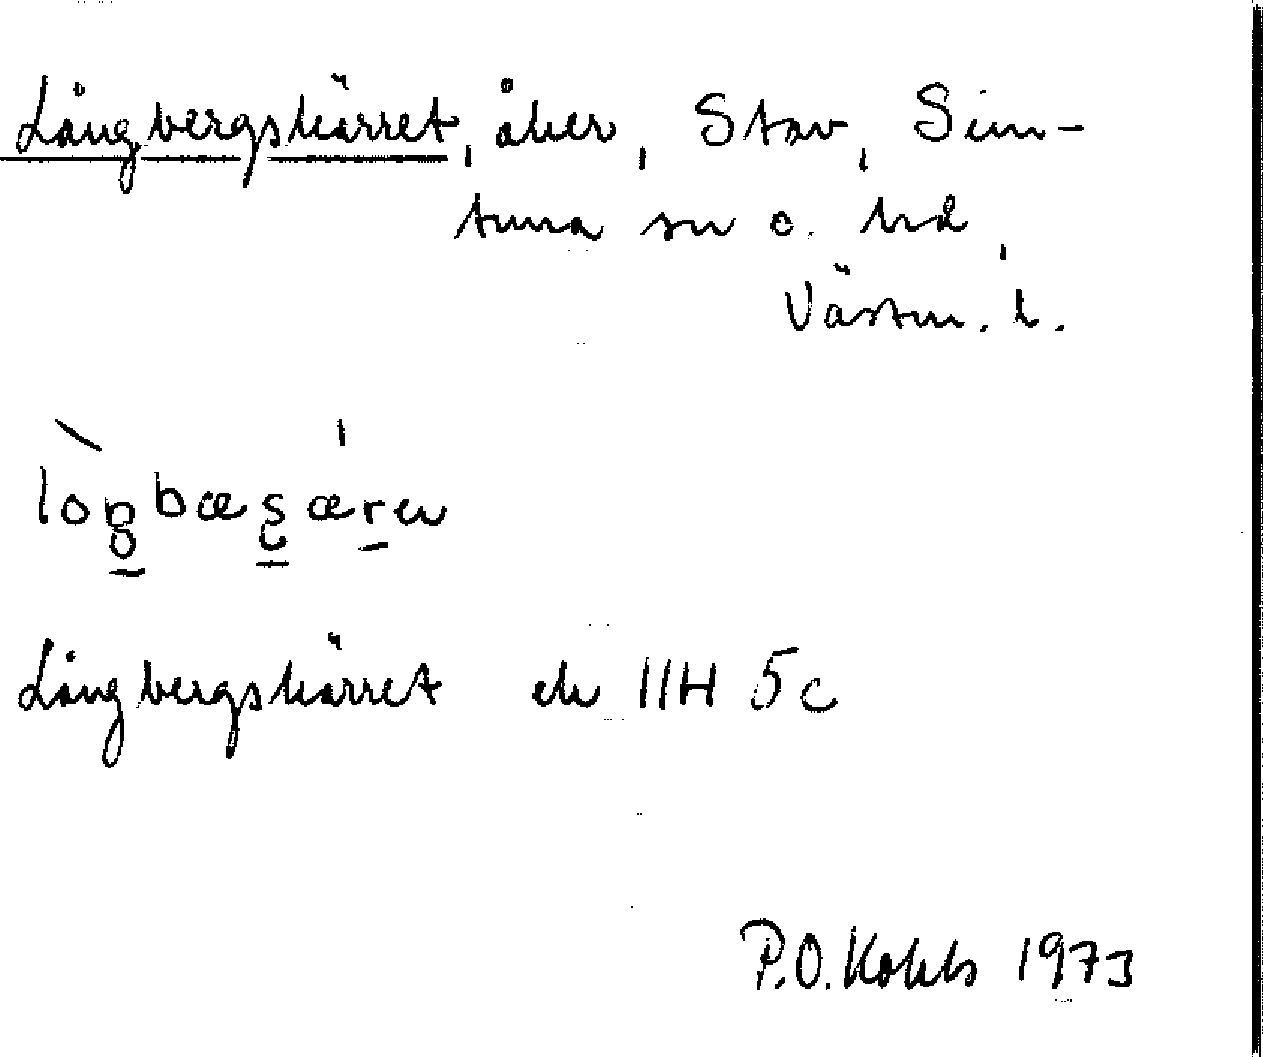 Långbergskärret, åker, Stav, Sim-
tuna sn o. hd,
Västm. l.
Långbergskärret ek 11H 5c
P.O. 1973